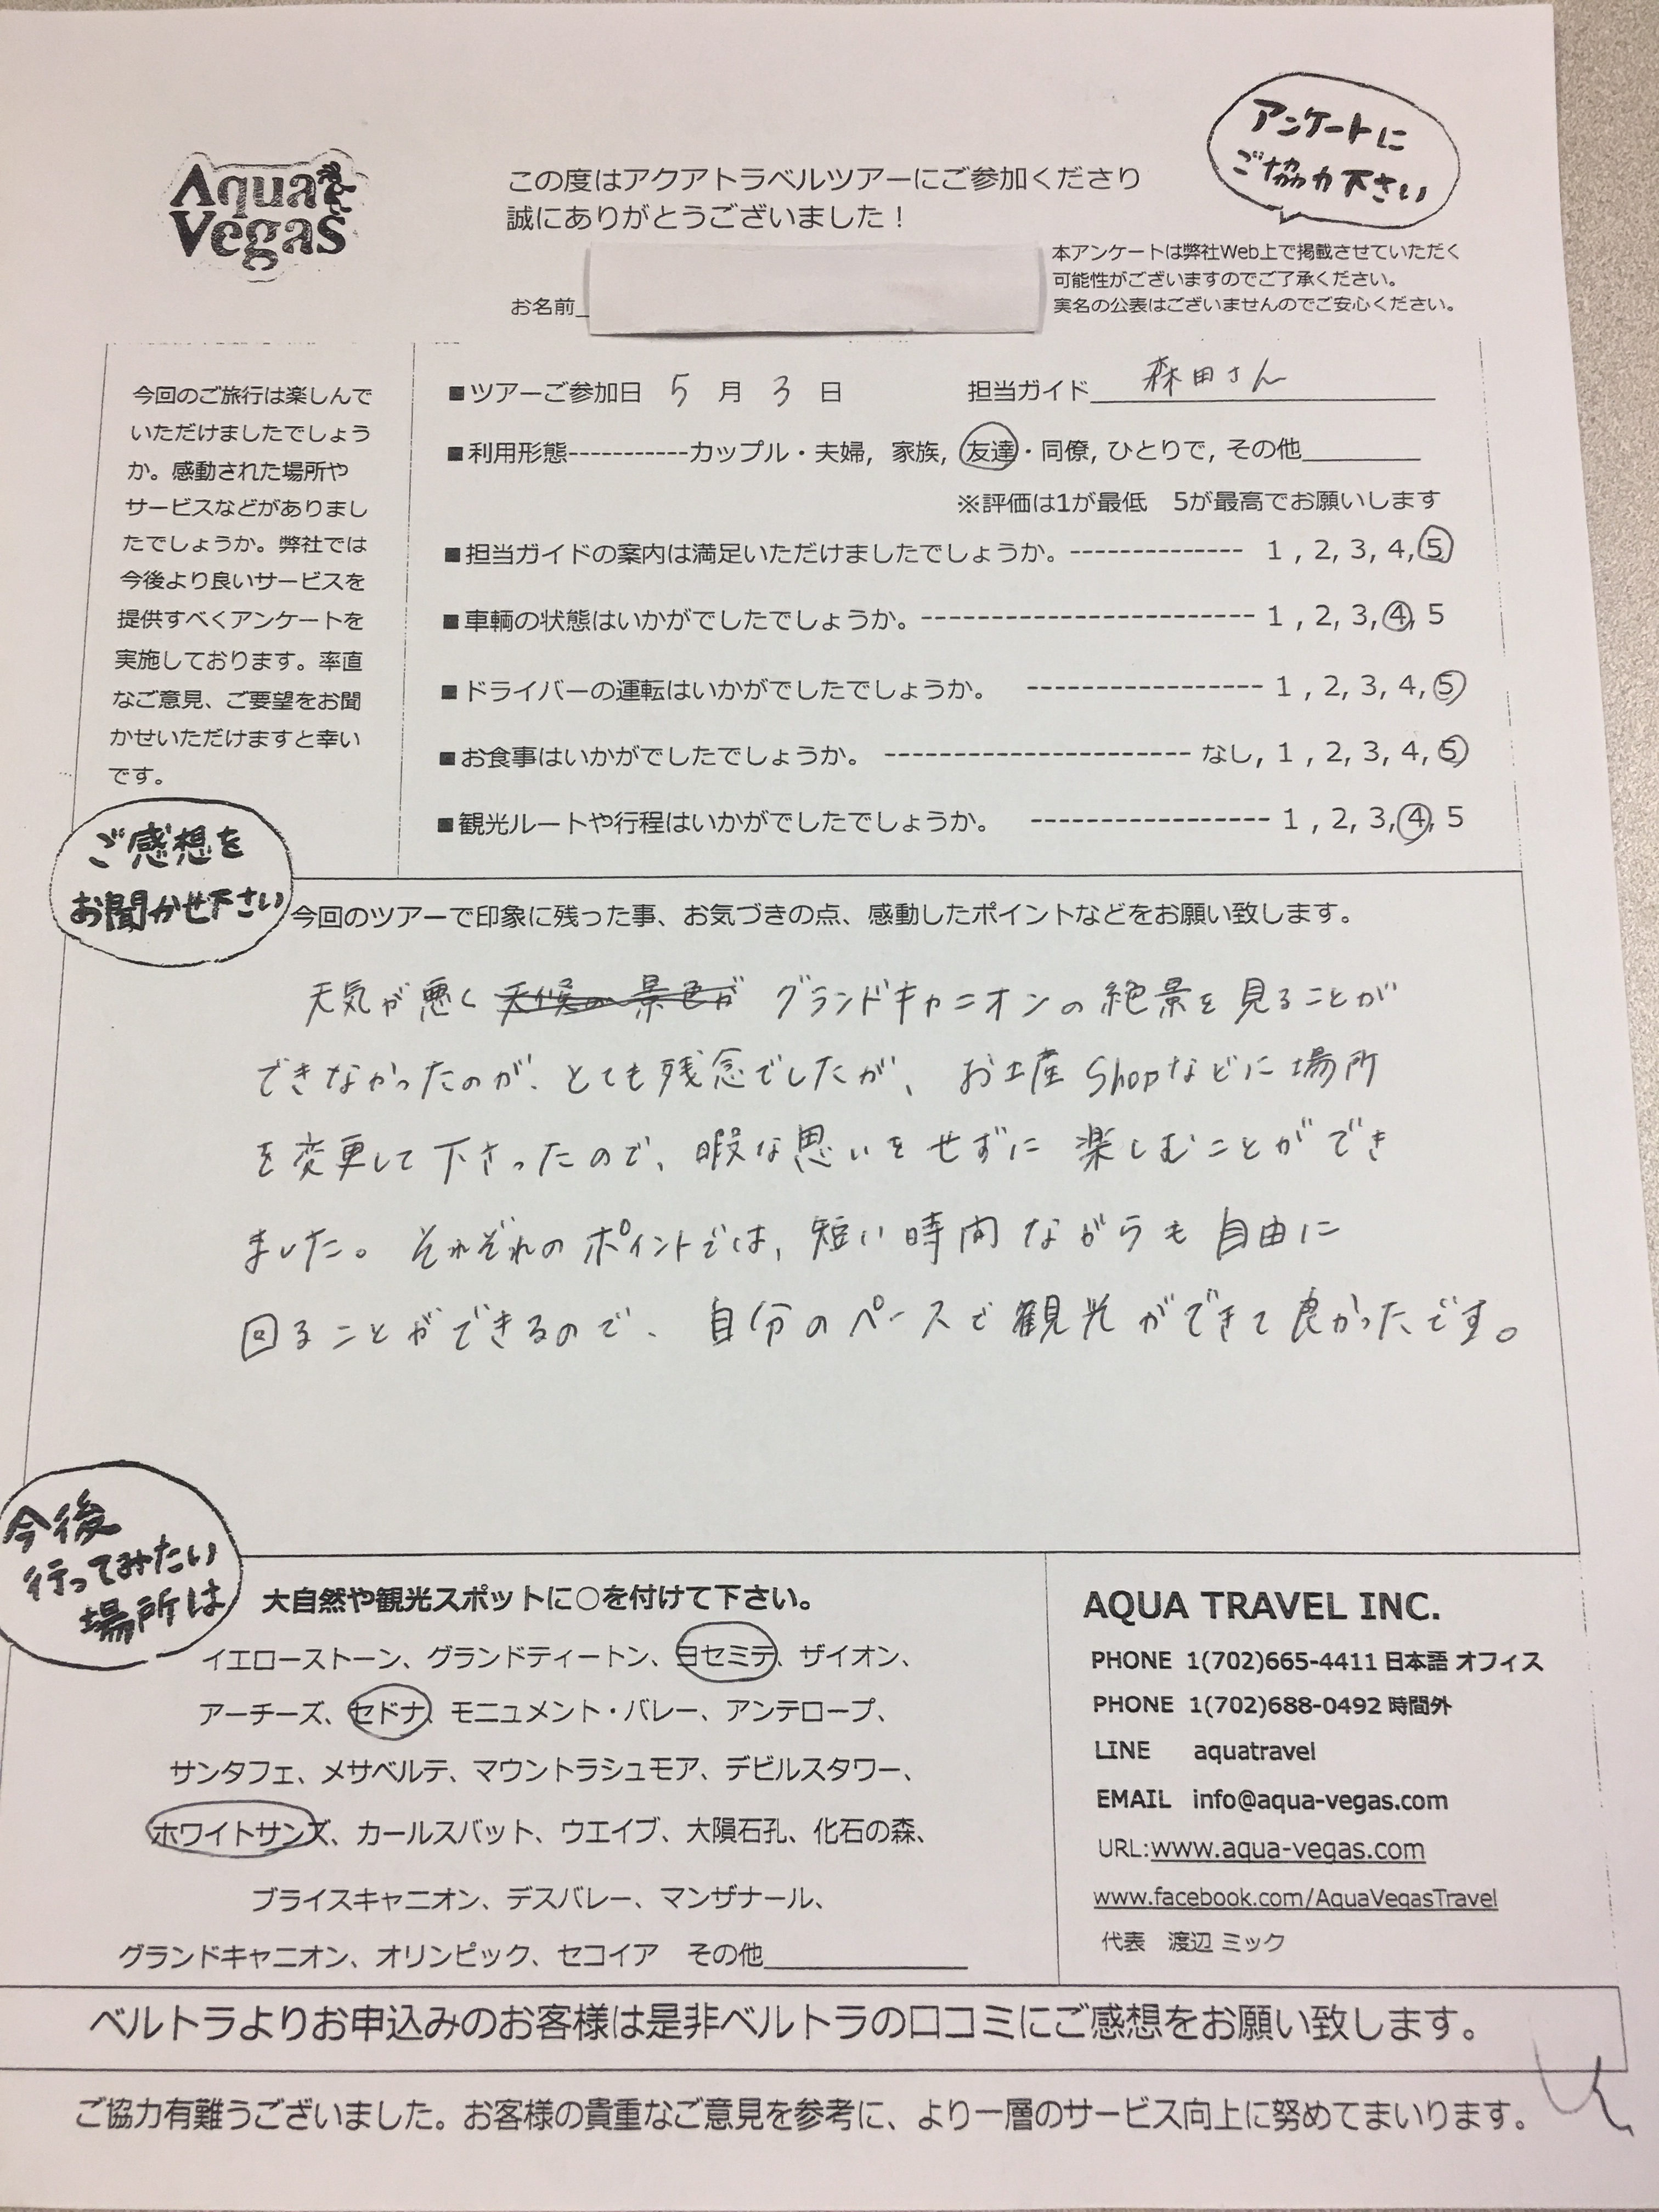 Aqua
Vegas
この度はアクアトラベルツアーにご参加くださり
誠にありがとうございました！
アンケートに
ご協力下さい
お名前
本アンケートは弊社Web上で掲載させていただく
可能性がございますのでご了承ください。
実名の公表はございませんのでご安心ください。
今回のご旅行は楽しんで
いただけましたでしょう
か。感動された場所や
サービスなどがありまし
たでしょうか。弊社では
今後より良いサービスを
提供すべくアンケートを
実施しております。率直
なご意見、ご要望をお聞
かせいただけますと幸い
です。
■ツアーご参加日 5 月 3 日 担当ガイド 森田さん
■利用形態-----------カップル・夫婦, 家族, 友達・同僚, ひとりで, その他
※評価は1が最低 5が最高でお願いします
■担当ガイドの案内は満足いただけましたでしょうか。-------------- 1 , 2, 3, 4, 5
■車輌の状態はいかがでしたでしょうか。--------------------------- 1 , 2, 3, 4, 5
■ドライバーの運転はいかがでしたでしょうか。 ------------------- 1 , 2, 3, 4, 5
■お食事はいかがでしたでしょうか。 ------------------------- なし, 1 , 2, 3, 4, 5
■観光ルートや行程はいかがでしたでしょうか。 ------------------- 1 , 2, 3, 4, 5
ご感想を
お聞かせ下さい
今回のツアーで印象に残った事、お気づきの点、感動したポイントなどをお願い致します。
天気が悪く グランドキャニオンの絶景を見ることが
できなかったのが、とても残念でしたが、お土産Shopなどに場所
を変更して下さったので、暇な思いをせずに楽しむことができ
ました。それぞれのポイントでは、短い時間ながらも自由に
回ることができるので、自分のペースで観光ができて良かったです。
今後
行ってみたい
場所は
大自然や観光スポットに○を付けて下さい。
イエローストーン、グランドティートン、ヨセミテ、ザイオン、
アーチーズ、セドナ、モニュメント・バレー、アンテロープ、
サンタフェ、メサベルテ、マウントラシュモア、デビルスタワー、
ホワイトサンズ、カールスバット、ウエイブ、大隕石孔、化石の森、
ブライスキャニオン、デスバレー、マンザナール、
グランドキャニオン、オリンピック、セコイア その他
AQUA TRAVEL INC.
PHONE 1(702)665-4411 日本語 オフィス
PHONE 1(702)688-0492 時間外
LINE aquatravel
EMAIL info@aqua-vegas.com
URL:www.aqua-vegas.com
www.facebook.com/AquaVegasTravel
代表 渡辺 ミック
ベルトラよりお申込みのお客様は是非ベルトラの口コミにご感想をお願い致します。
ご協力有難うございました。お客様の貴重なご意見を参考に、より一層のサービス向上に努めてまいります。